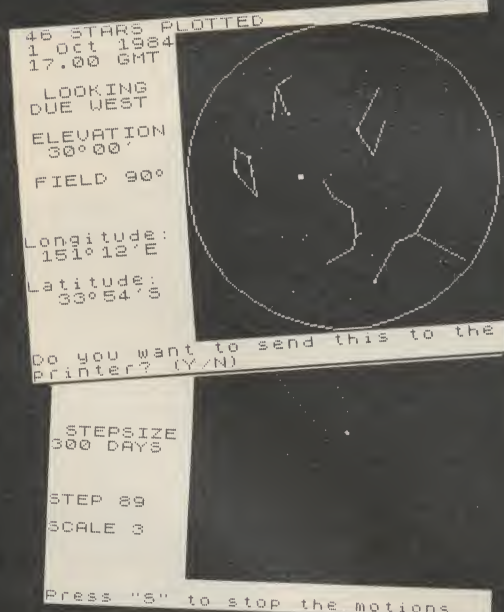 46 STARS PLOTTED
1 Oct 1984
17.00 GMT
LOOKING
DUE WEST
ELEVATION
30°00'
FIELD 90°
Longitude:
151°12'E
Latitude:
33°54'S
Do you want to send this to the
printer? (Y/N)
STEPSIZE
300 DAYS
STEP 89
SCALE 3
Press "S" to stop the motions